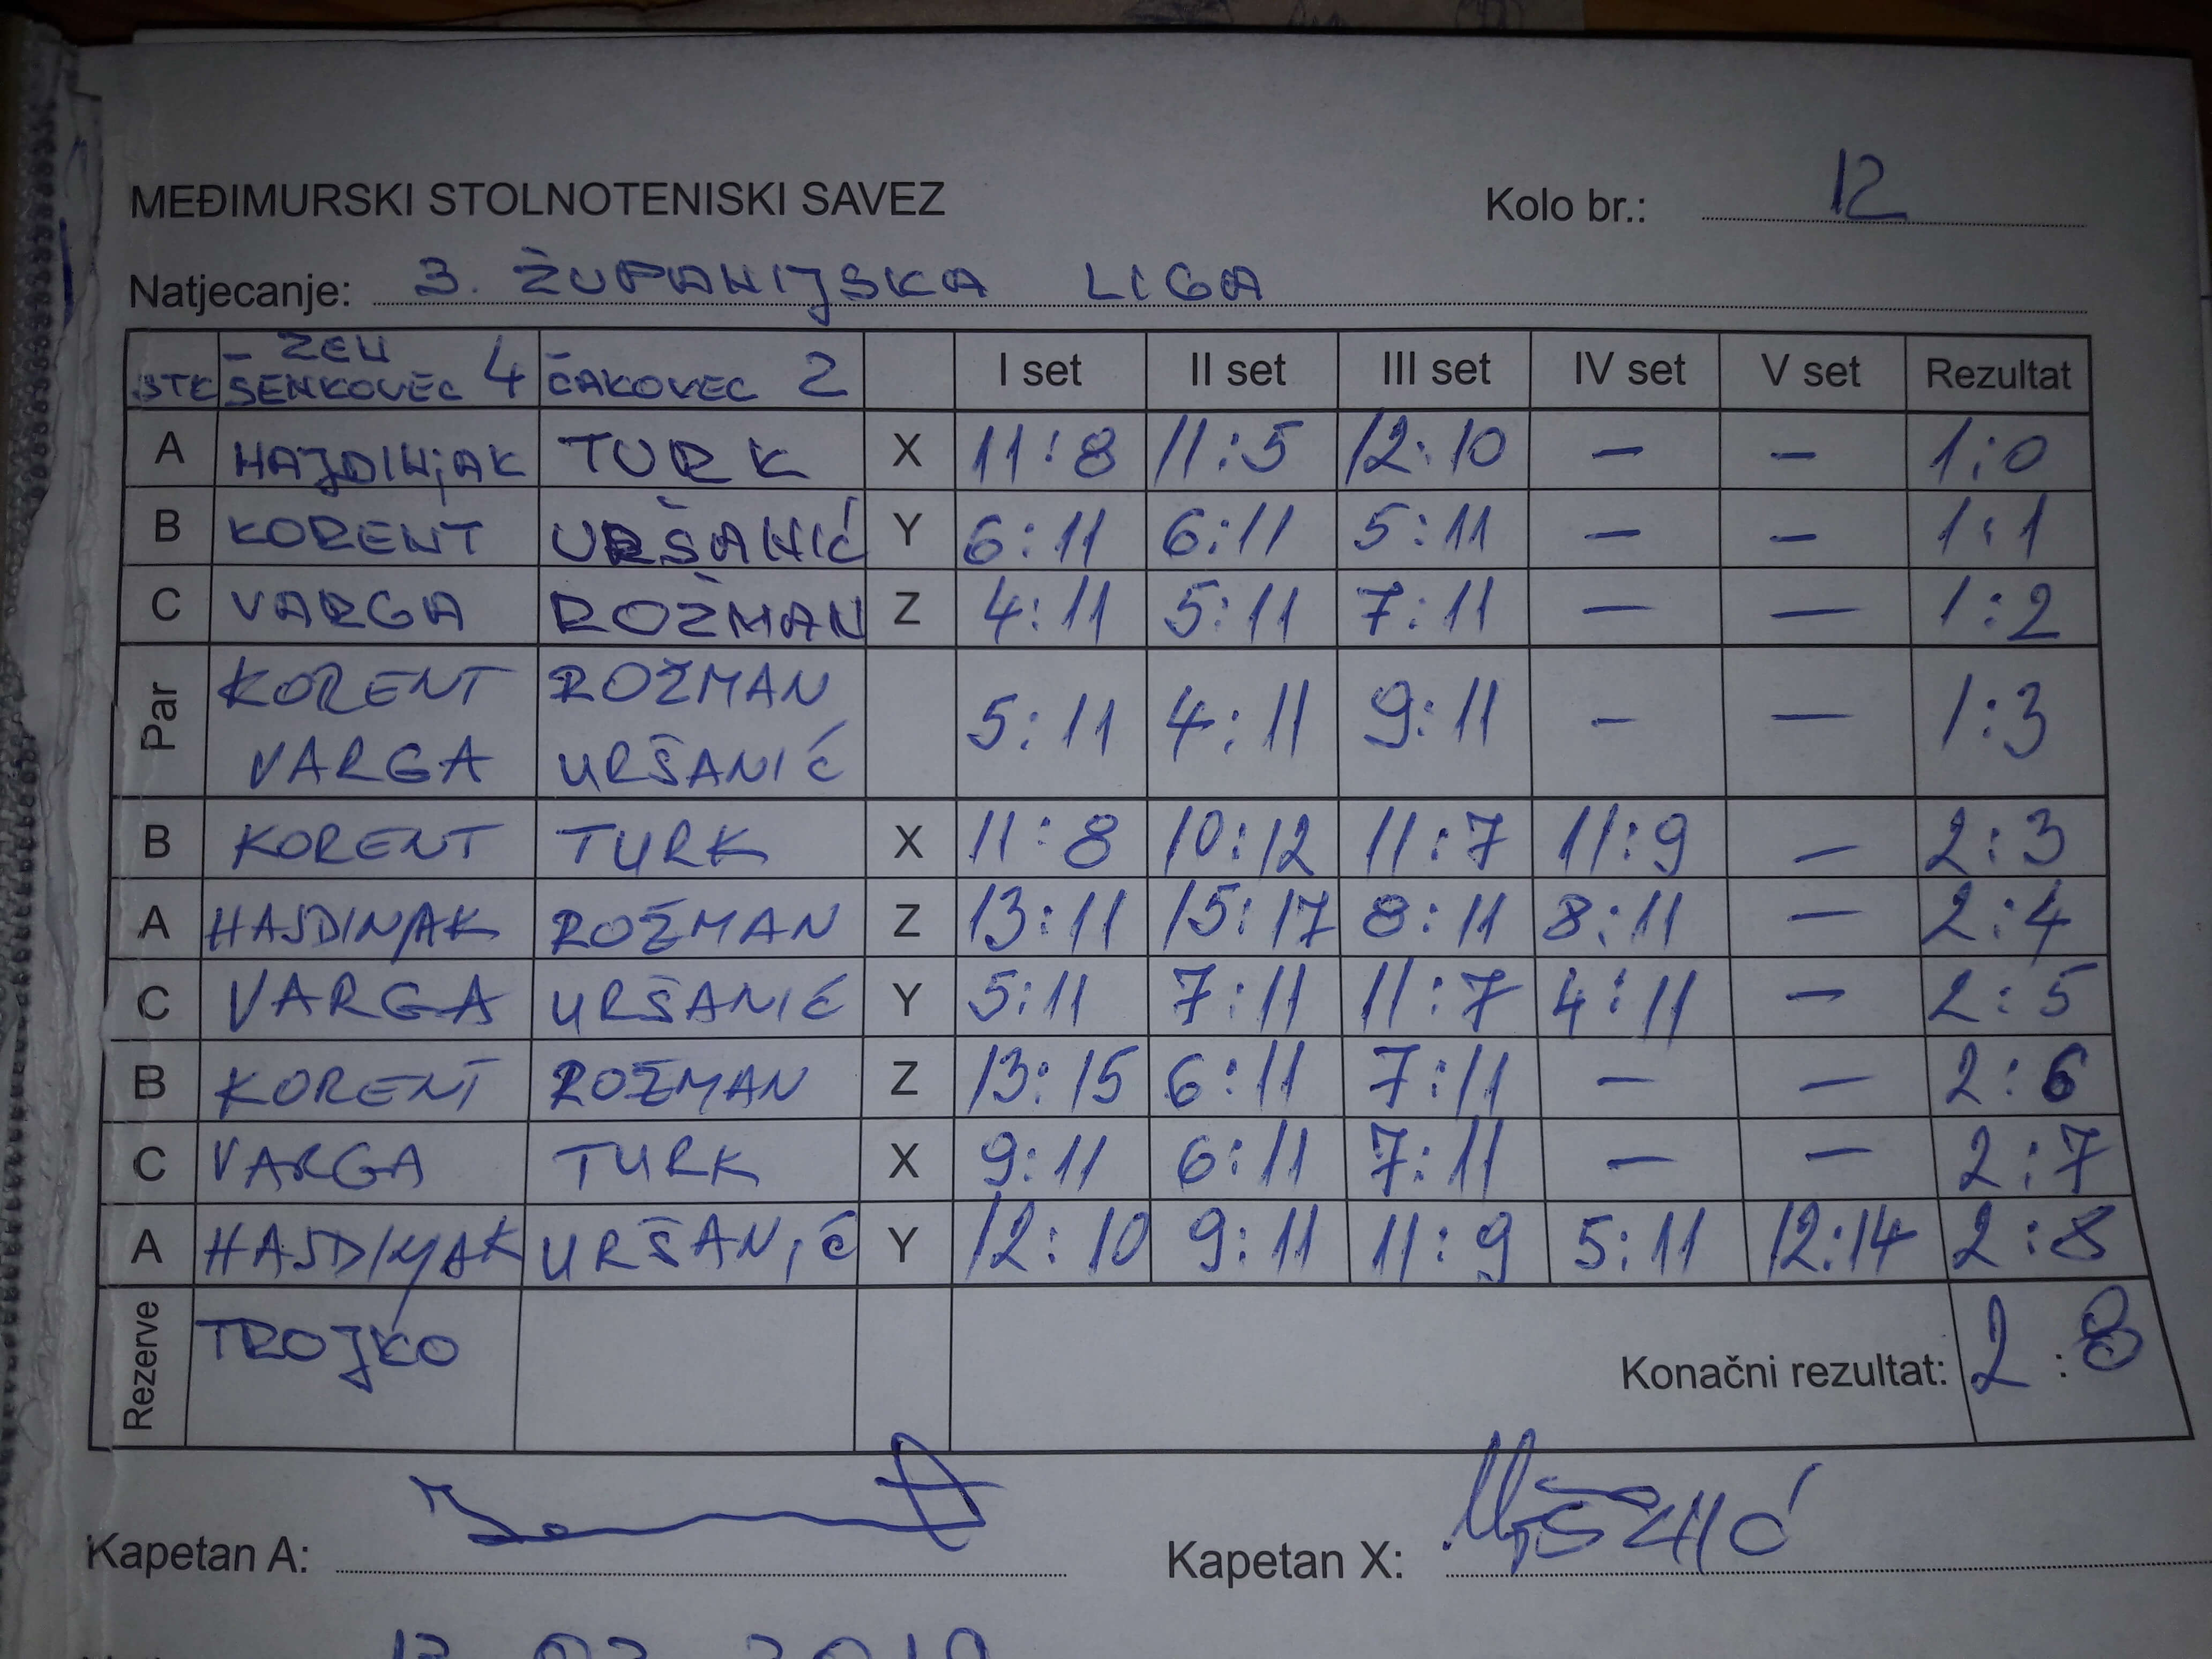 MEĐIMURSKI STOLNOTENISKI SAVEZ Kolo br.: 12
Natjecanje: 3. ŽUPANIJSKA LIGA
STK ŽEU ŠENKOVEC 4 ČAKOVEC 2 I set II set III set IV set V set Rezultat
A HAJDINjAK TURK X 11:8 11:5 12:10 – – 1:0
B KORENT URŠANIĆ Y 6:11 6:11 5:11 – – 1:1
C VARGA ROŽMAN Z 4:11 5:11 7:11 – – 1:2
Par KORENT VARGA ROŽMAN URŠANIĆ 5:11 4:11 9:11 – – 1:3
B KORENT TURK X 11:8 10:12 11:7 11:9 – 2:3
A HAJDINJAK ROŽMAN Z 13:11 15:17 8:11 8:11 – 2:4
C VARGA URŠANIĆ Y 5:11 7:11 11:7 4:11 – 2:5
B KORENT ROŽMAN Z 13:15 6:11 7:11 – – 2:6
C VARGA TURK X 9:11 6:11 7:11 – – 2:7
A HAJDINJAK URŠANIĆ Y 12:10 9:11 11:9 5:11 12:14 2:8
Rezerve TROJKO Konačni rezultat: 2:8
Kapetan A: Kapetan X: